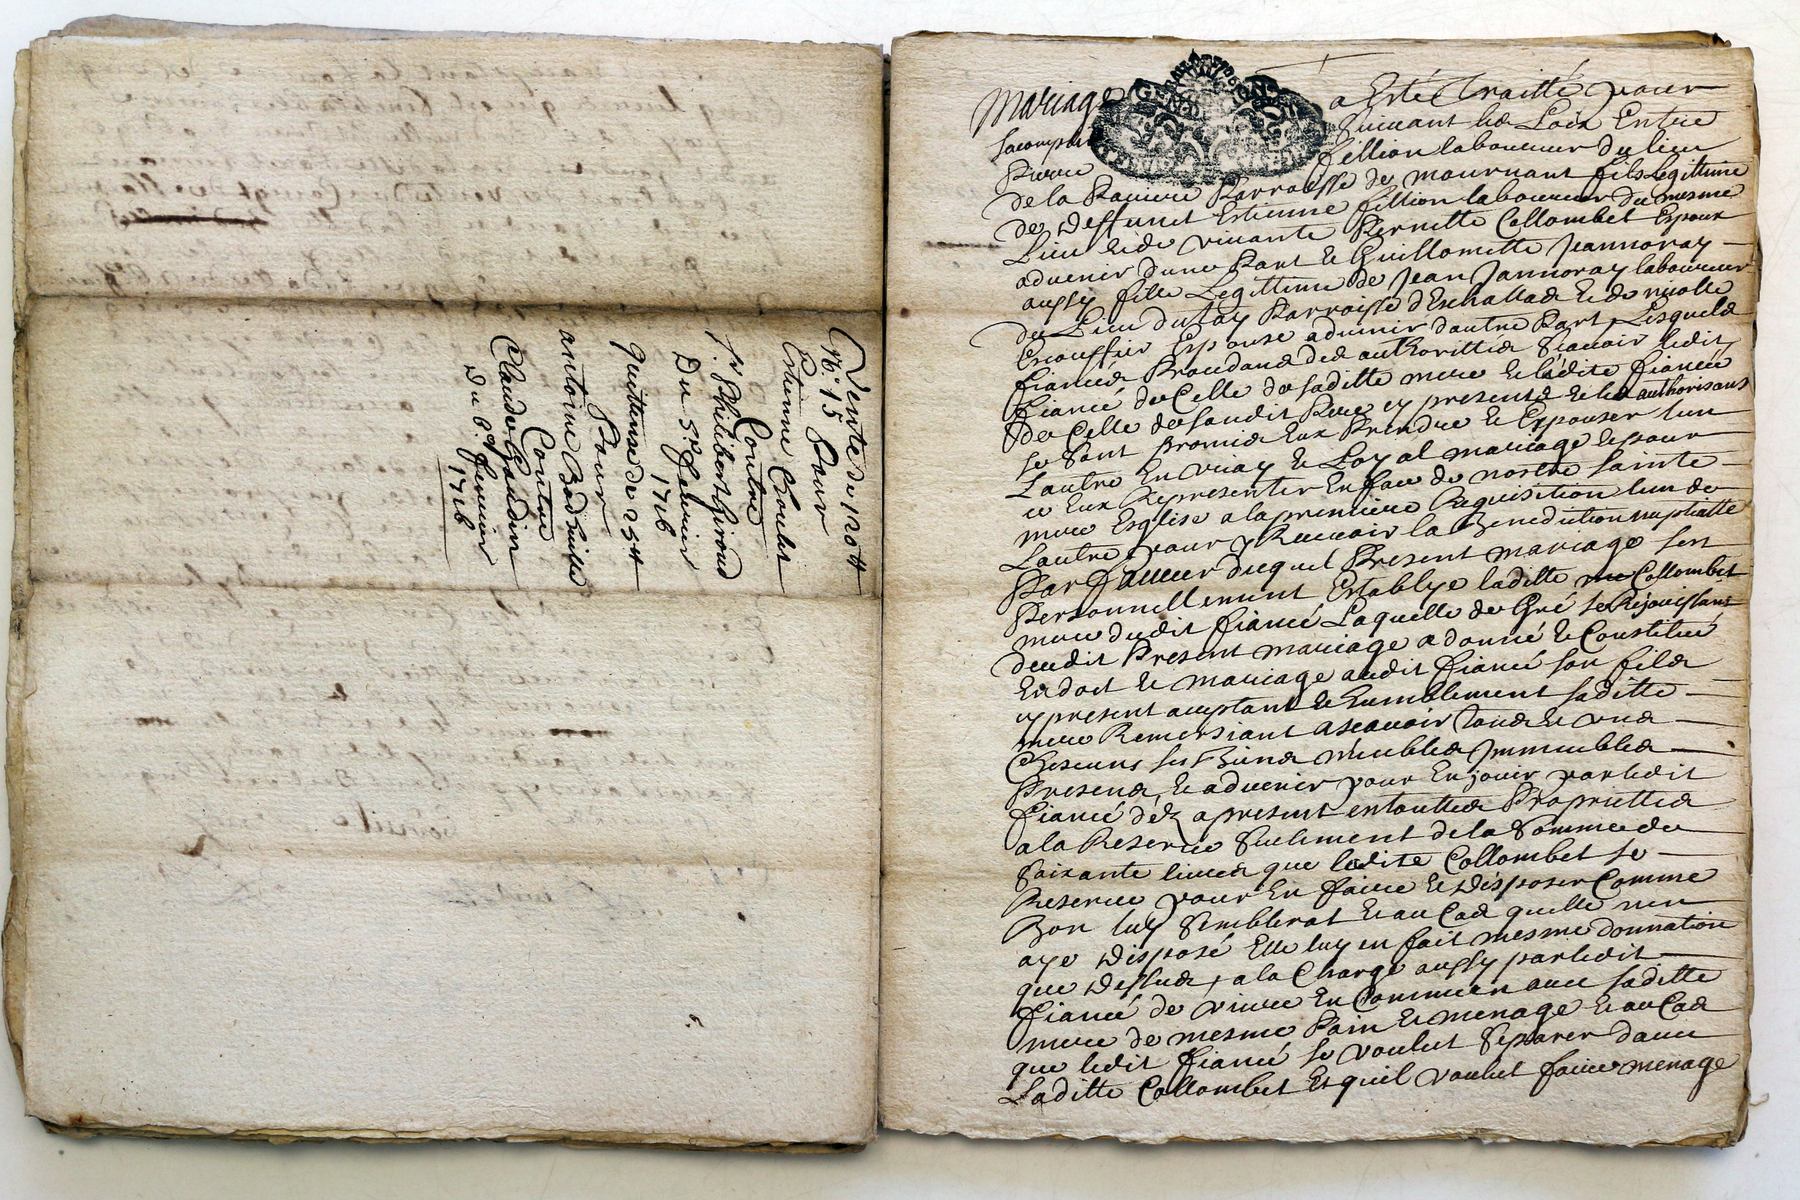 Vente de 120 tt
N.° 15 Pour
Estienne Boulet
Contre
Sr. Philibert Giroud
Du 5e. Janvier
1716
Quittanse de 25 tt
Pour
antoine
Contre
Claude Gaudin
Du 6e. Janvier
1716
Mariage a Esté Traitté pour
sacomplir suivant les Loix Entre
Pierre fillion laboureur du lieu
de la Parroisse de mournant fils legittime
de deffunct Estienne fillion laboureur du mesme
Lieu et de vivante Pernette Collombet Espoux
advenir dune Part et Guillomette Jeannoray
aussy fille Legittime de Jean Jannoray laboureur
du Lieu du Parroisse dEschallas et de nicolle
Escoffier Espouse advenir dautre Part, Lesquels
fiancés Procedans des authorittés scavoir ledit
fiancé de Celle de saditte mere et ladite fiancée
de Celle de sondit Pere cy presents et les authorisans
se sont promis Eux Prendre et Espouser lun
Lautre En vray et Loyal mariage et pour
ce Eux Representer En face de nostre sainte
mere Esglise a la premiere Requisition lun de
Lautre pour y Recevoir la Benediction nuptialle
Par faveur duquel Present mariage sest
Personnellement Establye laditte Collombet
mere dudit fiancé Laquelle de Gré se Rejouissant
dudit Present mariage a donné et Constitué
En dot et mariage audit fiancé son fils
cy present aceptant et humblement saditte
mere Remersiant ascavoir tous et uns
Chescuns ses Biens meubles Immeubles
Presens, et advenir pour En jouir par ledit
fiancé déz apresent en touttes Proprietés
a la Reserve seulement de la somme de
soixante livres que ladite Collombet se
Reserve pour En faire et disposer Comme
Bon luy semblerat et au Cas quelle nen
aye disposé Elle luy en fait mesme donnation
que dessus, a la Charge aussy par ledit
fiancé de vivre En Commun avec saditte
mere de mesme Pain et menage et au Cas
que ledit fiancé se voulut separer davec
Laditte Collombet Et quil voulut faire menage